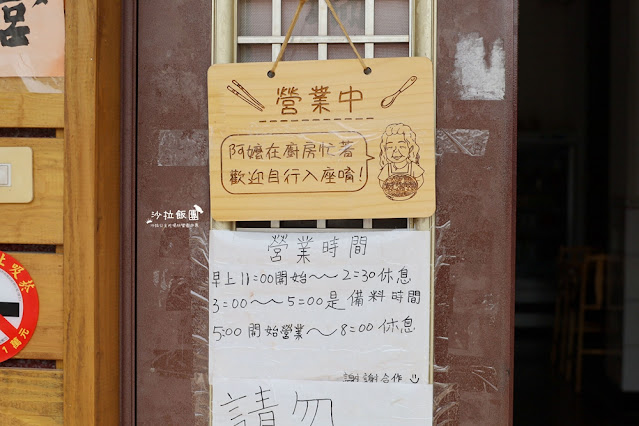 營業中
阿嬤在廚房忙著
歡迎自行入座唷!
沙拉飯團
營業時間
早上11:00開始～2:30休息
3:00～5:00是備料時間
5:00開始營業～8:00休息
謝謝合作
請勿